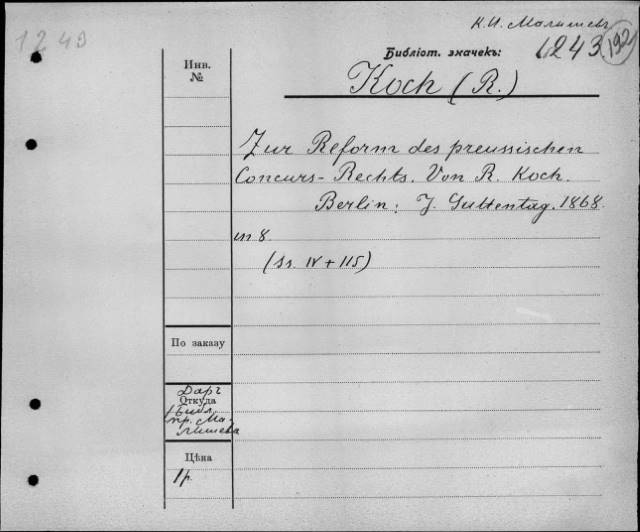 1243
К. И. Малышев
Библіот. значекъ: 6243 1921
Инв.
№
Koch (R.)
Zur Reform des preussischen
Concurs-Rechts. Von R. Koch.
Berlin: J. Guttentag. 1868.
in 8.
(SS. IV + 115)
По заказу
Даръ
Откуда
пр. Ма-
лышева
Цѣна
1 р.